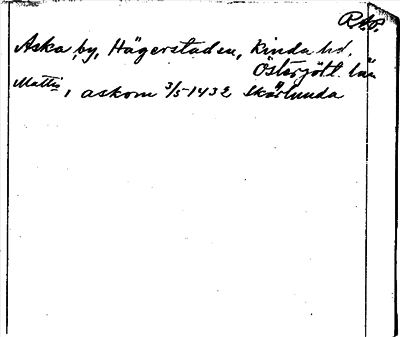 RAP.
Aska by, Hägerstaden, Kinda hd,
Östergötl. län
Mattis, askom 3/5 1432 Skärlunda